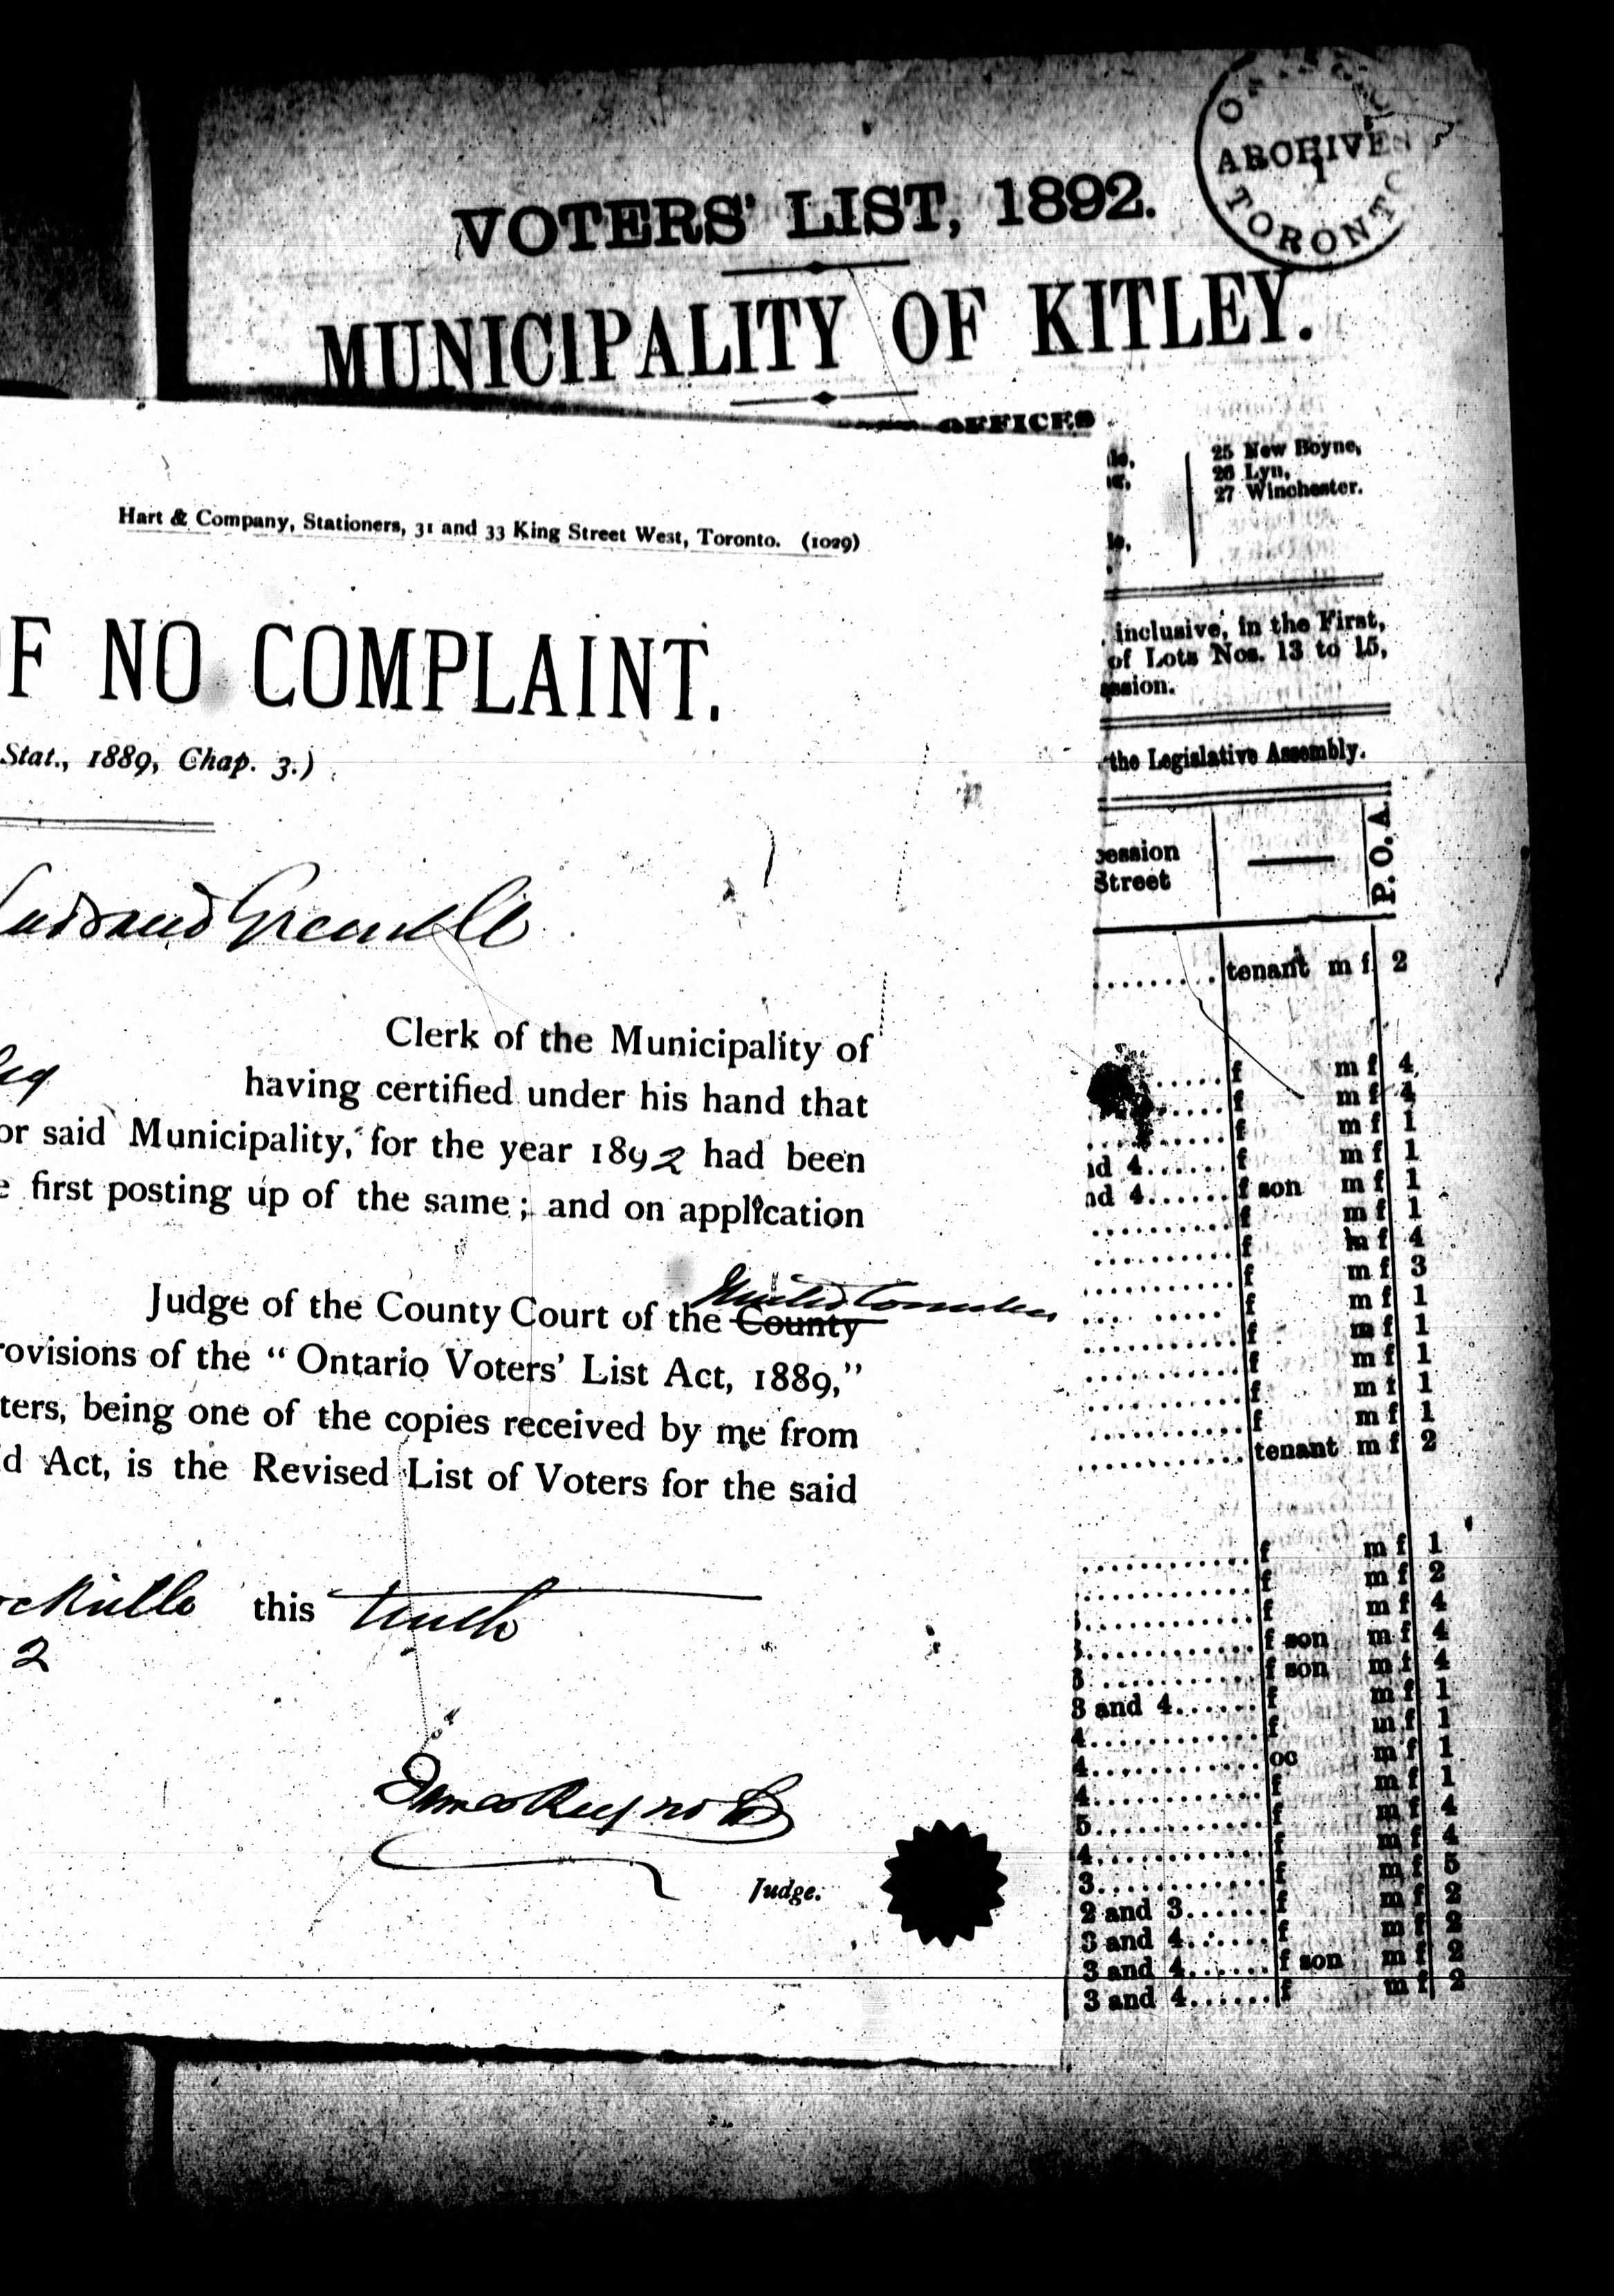 ARCHIVES
TORONTO
VOTERS' LIST, 1892.
MUNICIPALITY OF KITLEY.
OFFICES
25 New Boyne,
26 Lyn,
27 Winchester.
inclusive, in the First,
of Lots Nos. 13 to 15,
the Legislative Assembly.
Street
P. O. A.
Hart & Company, Stationers, 31 and 33 King Street West, Toronto. (1029)
F NO COMPLAINT.
Stat., 1889, Chap. 3.)
Clerk of the Municipality of
having certified under his hand that
or said Municipality, for the year 1892 had been
e first posting up of the same; and on application
United Counties
Judge of the County Court of the County
rovisions of the "Ontario Voters' List Act, 1889,"
ters, being one of the copies received by me from
d Act, is the Revised List of Voters for the said
this tenth
2
James Reynolds
Judge.
tenant m f 2
f m f 4
f m f 4
f m f 1
d 4 ...... f m f 1
d 4 ...... f son m f 1
f m f 1
f m f 4
f m f 3
f m f 1
f m f 1
f m f 1
f m f 1
f m f 1
tenant m f 2
f m f 1
f m f 2
f m f 4
f son m f 4
3 ............ f son m f 4
3 and 4 ...... f m f 1
4 ............ f m f 1
4 ............ oc m f 1
4 ............ f m f 1
5 ............ f m f 4
4 ............ f m f 4
3 ............ f m f 5
2 and 3 ...... f m f 2
3 and 4 ...... f m f 2
3 and 4 ...... f son m f 2
3 and 4 ...... f m f 2